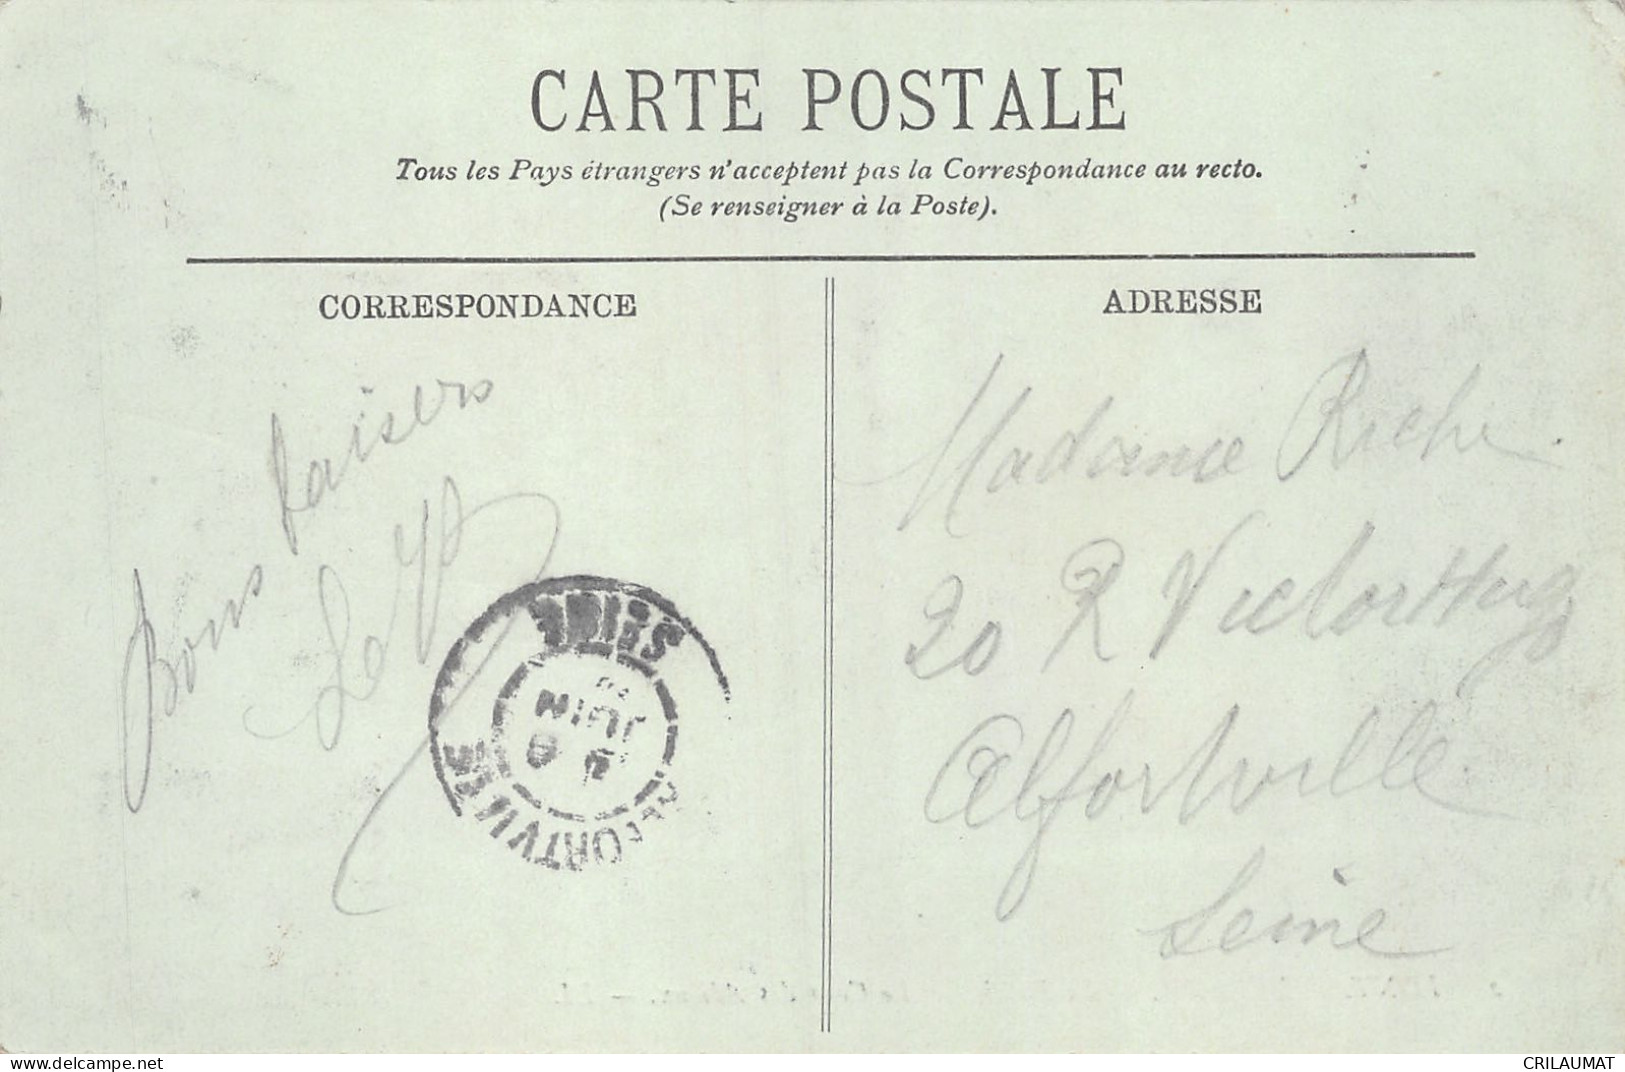 CARTE POSTALE
Tous les Pays étrangers n'acceptent pas la Correspondance au recto.
(Se renseigner à la Poste).
CORRESPONDANCE
Bons baisers
ADRESSE
Madame Riche
20 R Victor Hugo
Alfortville
Seine
SEINE
JUIN
ALFORTVILLE
delcampe.net
CRILAUMAT